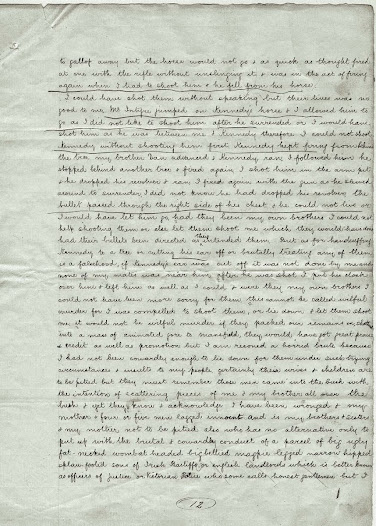 to gallop away but the horse would not go & as quick as thought fired
at one with the rifle without unslinging it & was in the act of firing
again when I had to shoot him & he fell from his horse.
I could have shot them without speaking but their lives was no
good to me. McIntyre jumped on Kennedys horse & I allowed him to
go as I did not like to shoot him after he surrendered or I would have
shot him as he was between me & Kennedy therefore I could not shoot
Kennedy without shooting him first. Kennedy kept firing from behind
the tree my brother Dan advanced & Kennedy ran I followed him he
stopped behind another tree & fired again I shot him in the arm pit
& he dropped his revolver & ran I fired again with the gun as he slewed
around to surrender I did not know he had dropped his revolver. the
bullet passed through the right side of his chest & he could not live or
I would have let him go had they been my own brothers I could not
help shooting them or else let them shoot me which they would have done
had their bullets been directed as they intended them. But as for handcuffing
Kennedy to a tree or cutting his ear off or brutally treating any of them
is a falsehood, if Kennedys ear was cut off it was not done by me and
none of my mates was near him after he was shot I put his cloak
over him & left him as well as I could & were they my own brothers I
could not have been more sorry for them this cannot be called wilful
murder for I was compelled to shoot them, or lie down & let them shoot
me it would not be wilful murder if they packed our remains in,
into a mass of animated gore to Mansfield, they would have got great praise
& credit as well as promotion but I am reconed a horrid brute because
I had not been cowardly enough to lie down for them under such trying
circumstances & insults to my people certainly their wives & children are
to be pitied but they must remember those men came into the bush with
the intention of scattering pieces of me & my brother all over the
bush & yet they know & acknowledge I have been wronged & my
mother & four or five men lagged innocent and is my brothers & sisters
& my mother not to be pitied also who has no alternative only to
put up with the brutal & cowardly conduct of a parcel of big ugly
fat necked wombat headed big bellied magpie legged narrow hipped
splaw footed sons of Irish Bailiffs or english landlords which is better known
as officers of Justice or Victorian Police who some calls honest gentlemen but I
12